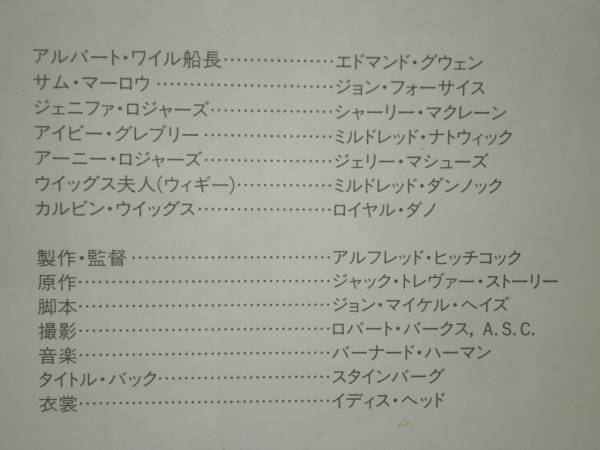 アルバート・ワイル船長………………エドマンド・グウェン
サム・マーロウ………………………ジョン・フォーサイス
ジェニファ・ロジャーズ………………シャーリー・マクレーン
アイビー・グレブリー…………………ミルドレッド・ナトウィック
アーニー・ロジャーズ…………………ジェリー・マシューズ
ウイッグス夫人(ウィギー)……………ミルドレッド・ダンノック
カルビン・ウイッグス…………………ロイヤル・ダノ
製作・監督……………………………アルフレッド・ヒッチコック
原作……………………………………ジャック・トレヴァー・ストーリー
脚本……………………………………ジョン・マイケル・ヘイズ
撮影……………………………………ロバート・バークス, A.S.C.
音楽……………………………………バーナード・ハーマン
タイトル・バック………………………スタインバーグ
衣裳……………………………………イディス・ヘッド